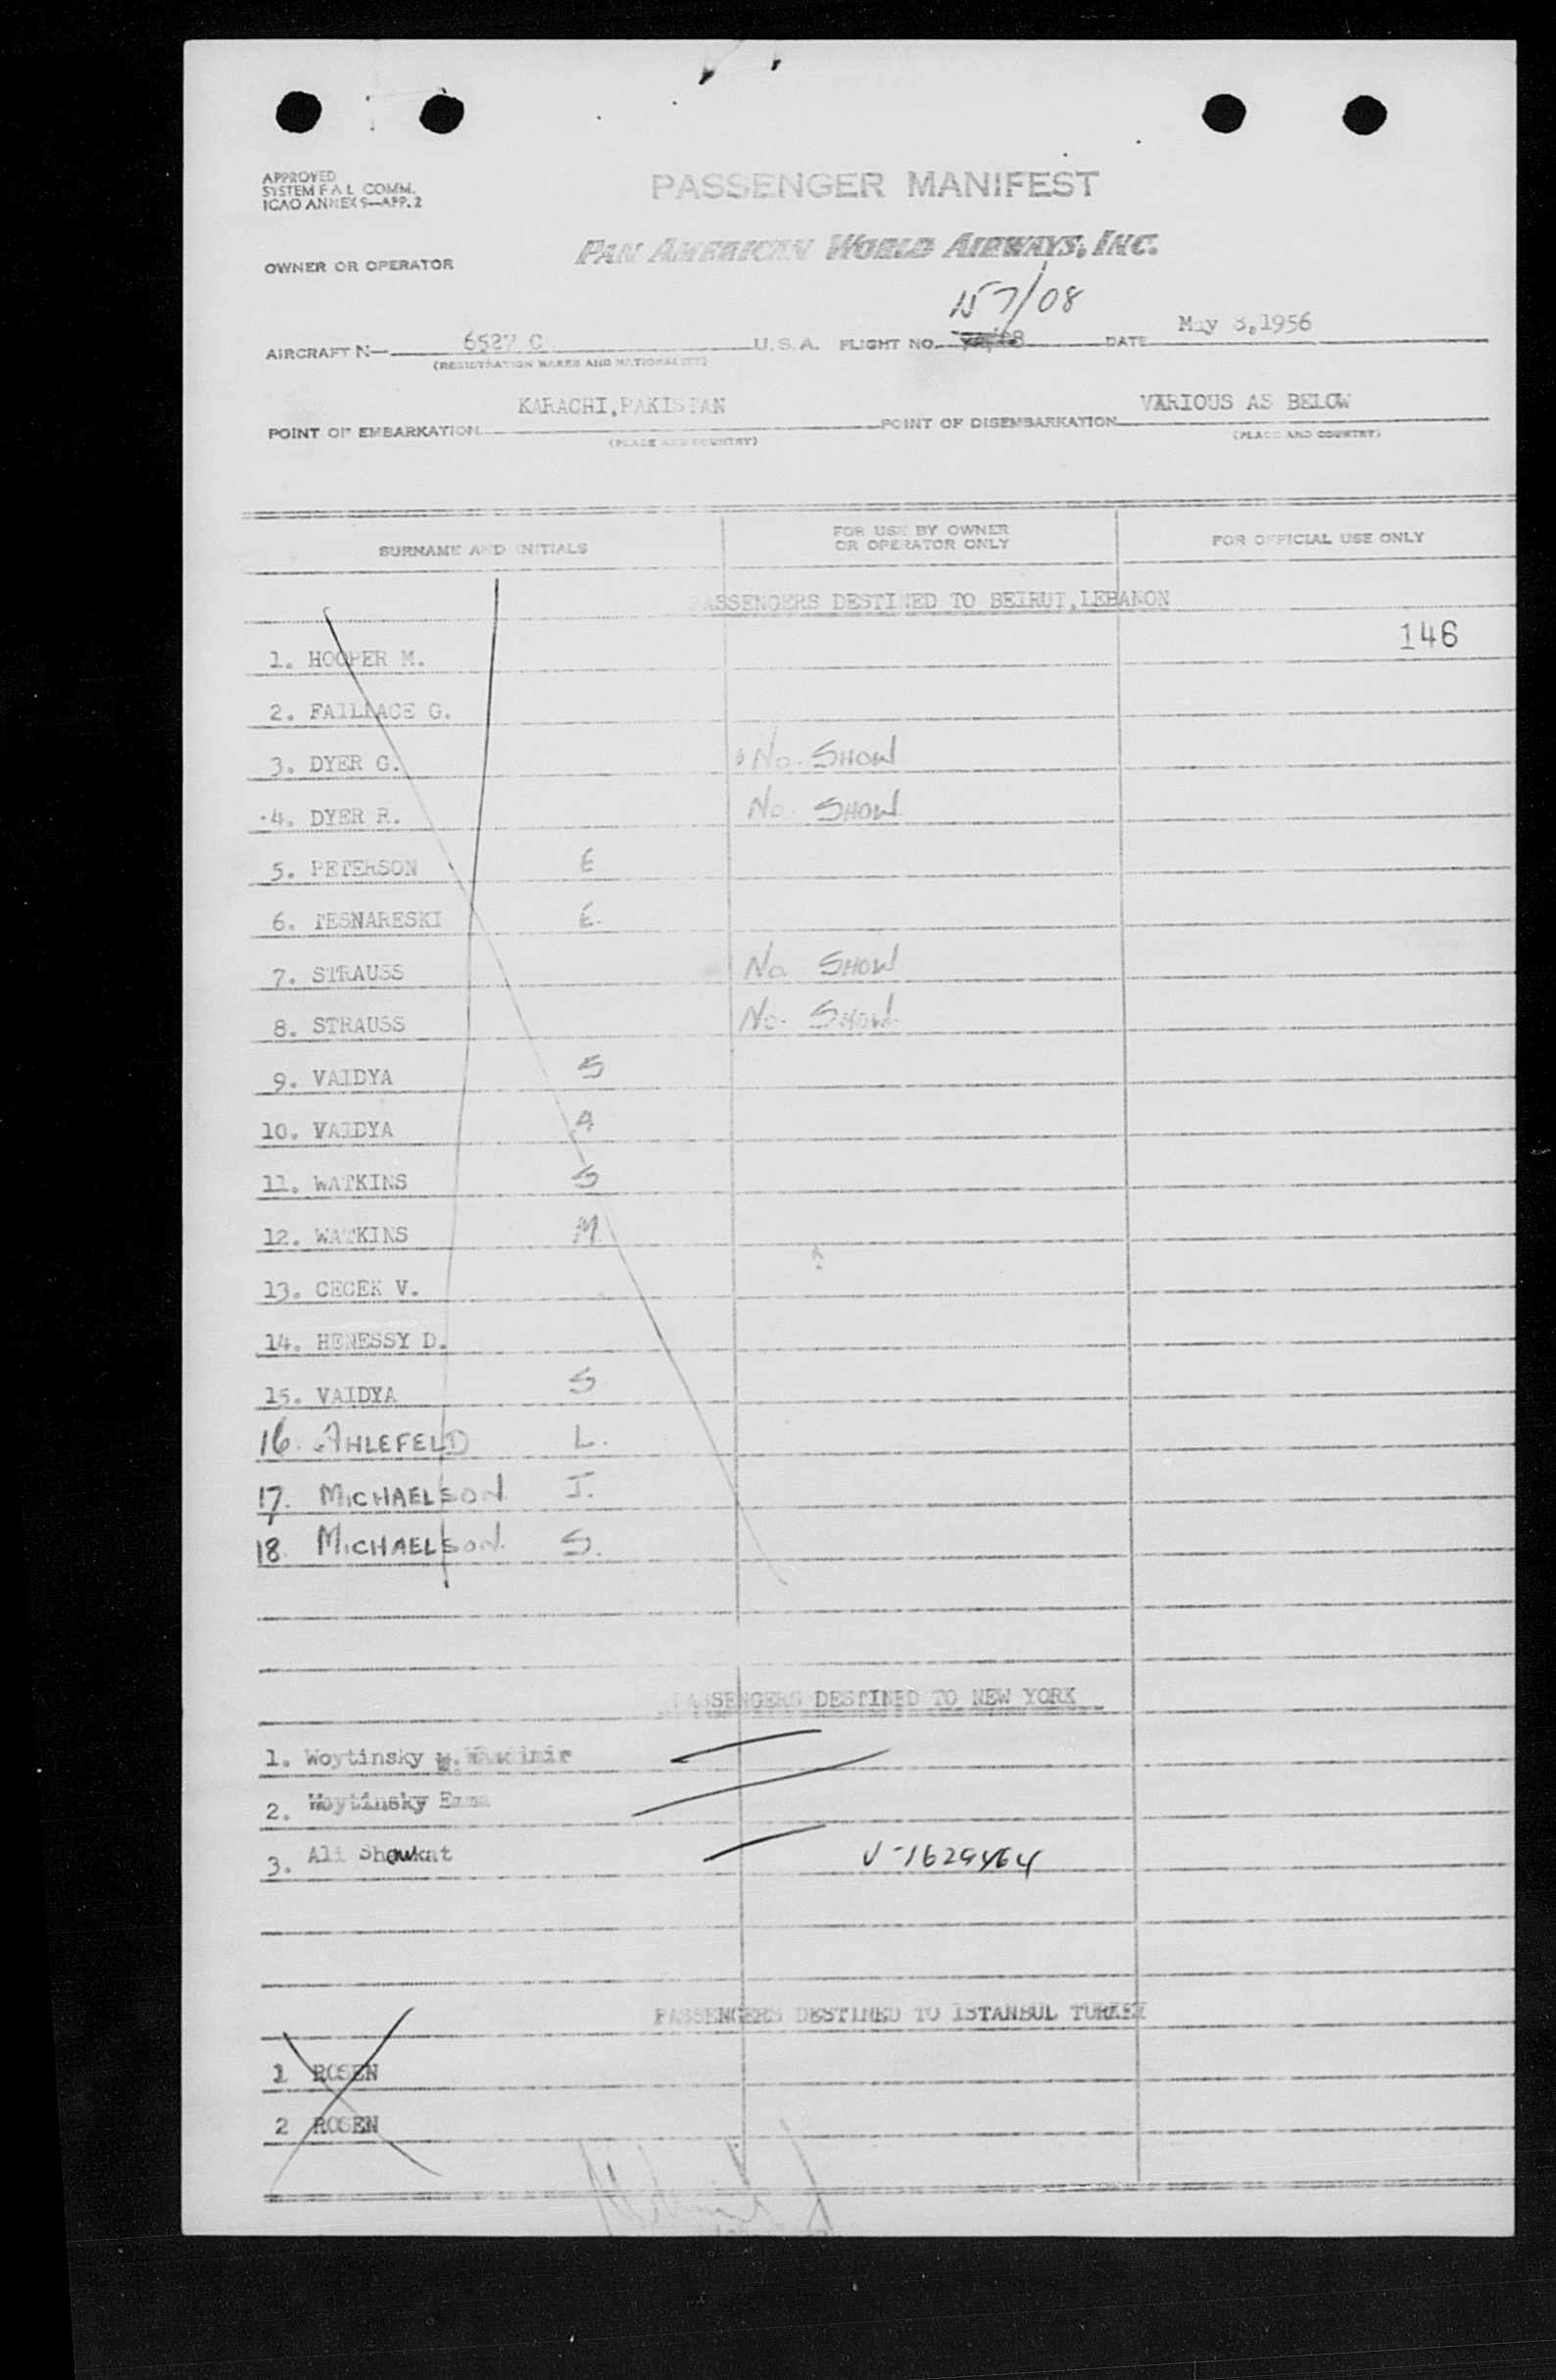 APPROVED
SYSTEM F A L COMM.
ICAO ANNEX 9—APP. 2
PASSENGER MANIFEST
OWNER OR OPERATOR PAN AMERICAN WORLD AIRWAYS, INC.
157/08
AIRCRAFT N— 6527 C U. S. A. FLIGHT NO. DATE May 8,1956
(REGISTRATION MARKS AND NATIONALITY)
POINT OF EMBARKATION KARACHI,PAKISTAN POINT OF DISEMBARKATION VARIOUS AS BELOW
(PLACE AND COUNTRY) (PLACE AND COUNTRY)
SURNAME AND INITIALS FOR USE BY OWNER OR OPERATOR ONLY FOR OFFICIAL USE ONLY
PASSENGERS DESTINED TO BEIRUT,LEBANON
146
1. HOOPER M.
2. FAILLACE G.
3. DYER G. No. SHOW
4. DYER R. No. SHOW
5. PETERSON E
6. TESNARESKI E.
7. STRAUSS No SHOW
8. STRAUSS No. SHOW
9. VAIDYA S
10. VAIDYA A
11. WATKINS S
12. WATKINS M
13. CECEK V.
14. HENESSY D.
15. VAIDYA S
16. AHLEFELD L.
17. MICHAELSON J.
18. MICHAELSON. S.
PASSENGERS DESTINED TO NEW YORK
1. Woytinsky W. Wladimir
2. Woytinsky Emma
3. Ali Shaukat V-1629464
PASSENGERS DESTINED TO ISTANBUL TURKEY
1 ROSEN
2 ROSEN